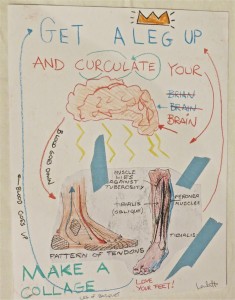 GET A LEG UP
AND CURCULATE YOUR
BRIAN
BRAIN
BRAIN
BLOOD GOES DOWN
BLOOD GOES UP
MUSCLE
AGAINST
TUBEROSITY
TIBIALIS
(OBLIQUE)
PERONEA
MUSCLES
TIBIALIS
PATTERN OF TENDONS
LOVE YOUR FEET!
MAKE A
COLLAGE